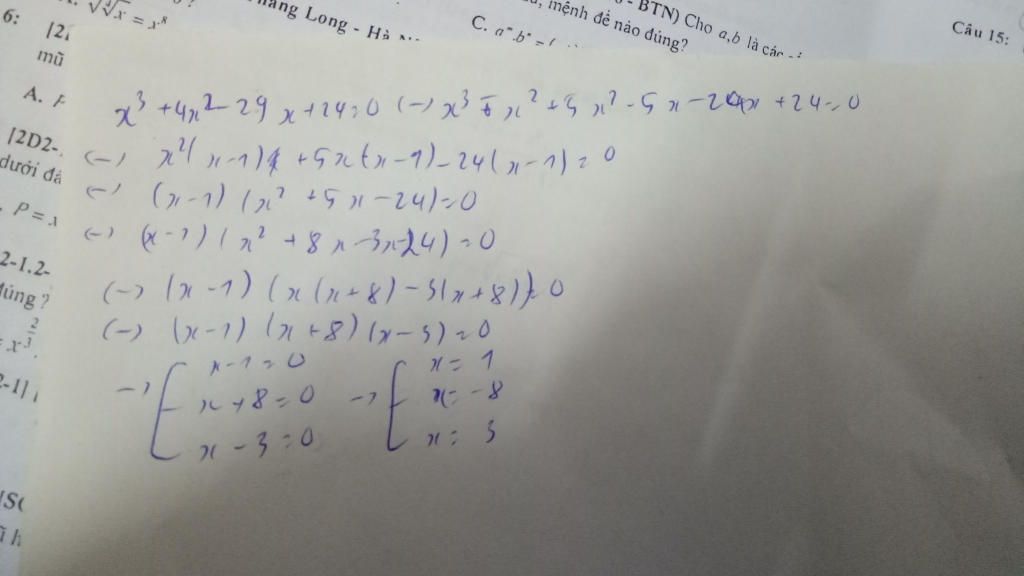 √√x = x⁸
Thăng Long - Hà
C. aⁿ.bⁿ = (
- BTN) Cho a,b là các
mệnh đề nào đúng?
Câu 15:
6:
mũ
A.
[2D2-
dưới đá
P = x
2-1.2-
đúng ?
= x^(2/3).
2-1]
x³ + 4x² - 29x + 24 = 0 (-) x³ - x² + 5x² - 5x - 24x + 24 = 0
(-) x²(x-1) + 5x(x-1) - 24(x-1) = 0
(-) (x-1)(x² + 5x - 24) = 0
(-) (x-1)(x² + 8x - 3x - 24) = 0
(-) (x-1)(x(x+8) - 3(x+8)) = 0
(-) (x-1)(x+8)(x-3) = 0
-> [ x-1 = 0 -> [ x = 1
x+8 = 0 x = -8
x-3 = 0 x = 3